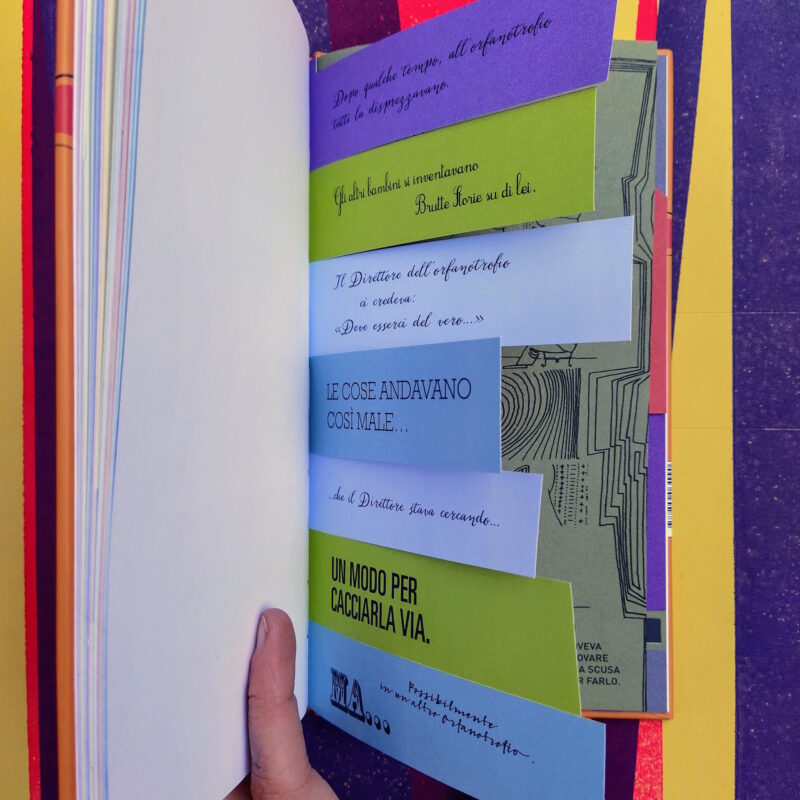 Dopo qualche tempo, all'orfanotrofio
tutti la disprezzavano.
Gli altri bambini si inventavano
Brutte Storie su di lei.
Il Direttore dell'orfanotrofio
ci credeva:
«Deve esserci del vero...»
LE COSE ANDAVANO
COSÌ MALE...
...che il Direttore stava cercando...
UN MODO PER
CACCIARLA VIA.
MA...
Possibilmente
in un altro Orfanotrofio.
SCUSA
FARLO.